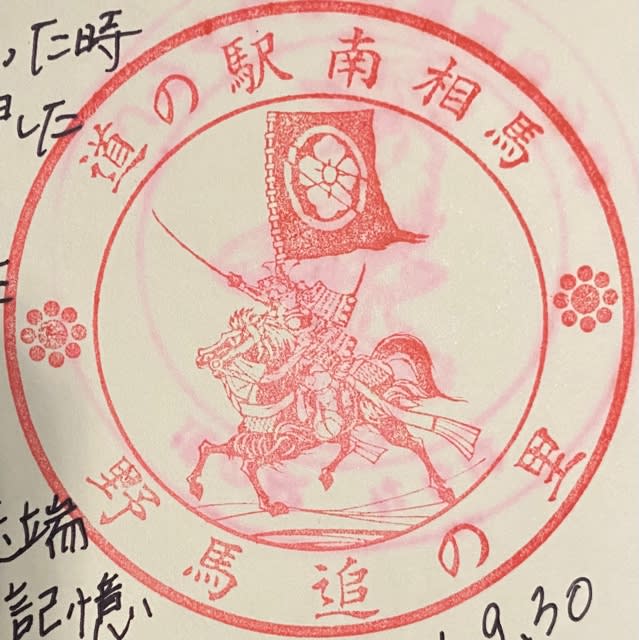 った時
した
道の駅南相馬
野馬追の里
端
記憶
9.30